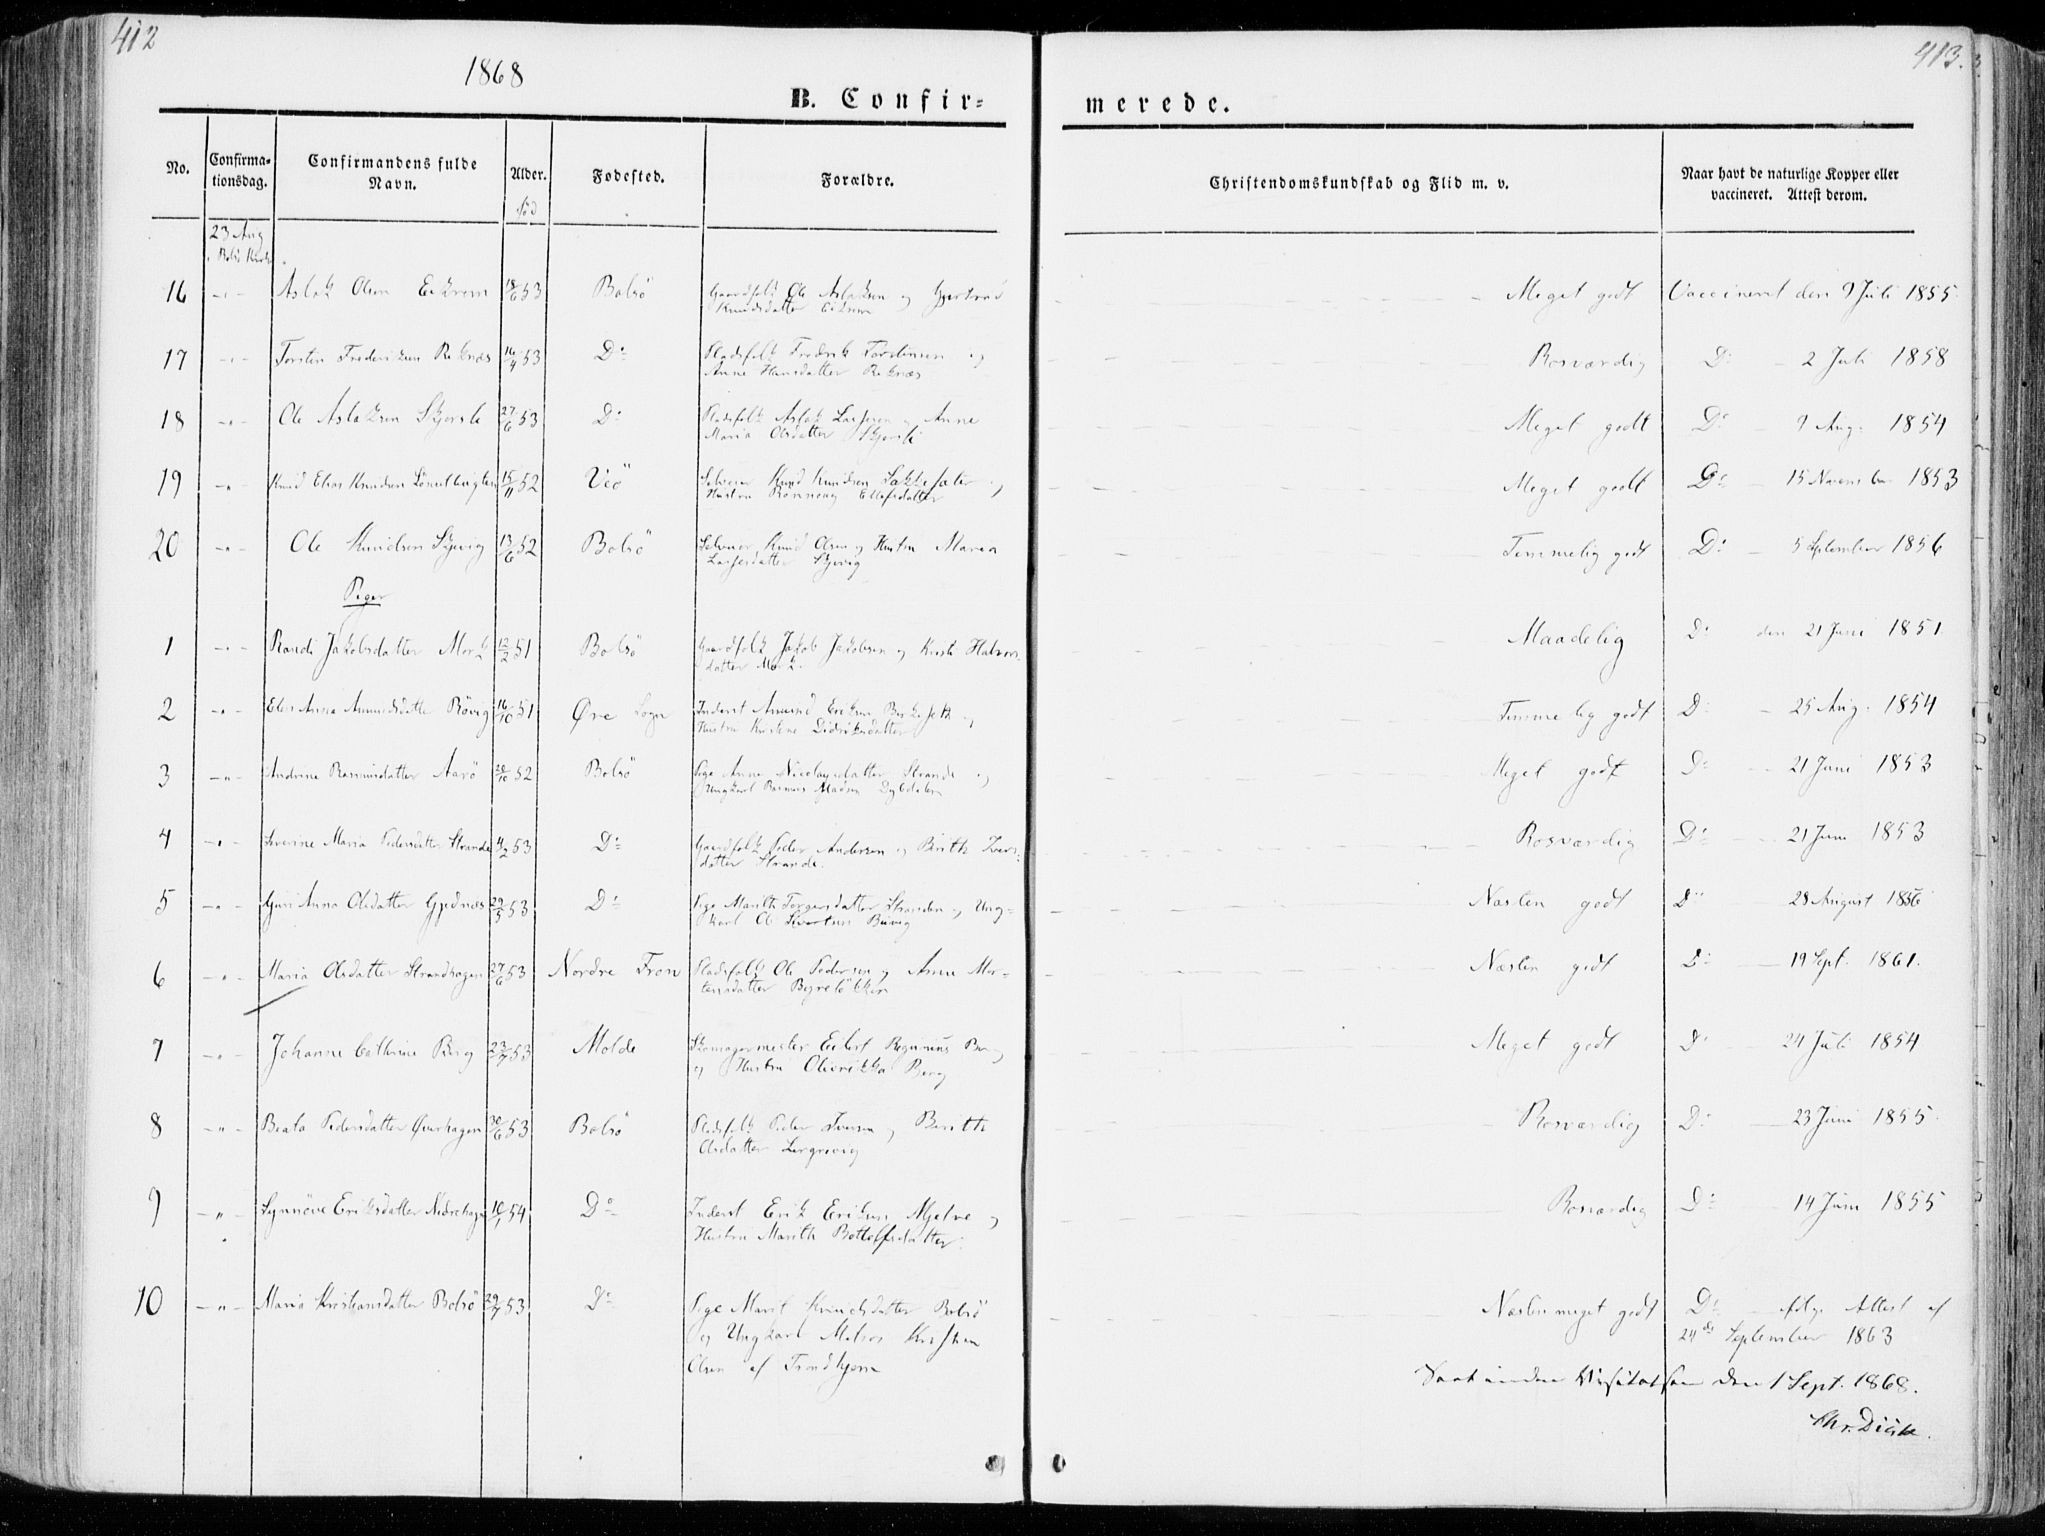 412
413.
1868
B. Confir-
merede.
No. Confirma-tionsdag. Confirmandens fulde Navn. Alder. Fødested. Forældre. Christendomskundskab og Flid m. v. Naar havt de naturlige Kopper eller vaccineret. Attest derom.
fød
23 Aug
16 -"- Aslak Olsen Eikrem 18/6 53 Bolsö Gaardfolk Ole Aslaksen og Gjertrud Meget godt Vaccineret den 9 Juli 1855
Knudsdatter Eikrem
17 -"- Torsten Frederiksen Reknæs 16/4 53 Do Pladsfolk Fredrik Torstensen og Rosværdig Do - 2 Juli 1858
Anne Hansdatter Reknæs
18 -"- Ole Aslaksen Skjorsli 27/6 53 Do Pladsfolk Aslak Larssen og Anne Meget godt Do 9 Aug. 1854
Maria Olsdatter Skjorsli
19 -"- Knud Elias Knudsen 15/11 52 Veö Selveier Knud Knudsen og Meget godt Do 15 November 1853
Hustru Rönnoug Ellefsdatter
20 -"- Ole Knudsen Skjevig 13/6 52 Bolsö Selveier Knud Olsen og Hustru Maria Temmelig godt Do - 5 September 1856
Larsesdatter Skjevig
Piger
1 -"- Randi Jakobsdatter Mork 12/2 51 Bolsö Gaardfolk Jakob Jakobsen og Kirsti Halvors- Maadelig Do den 21 Juni 1851
datter Mork.
2 -"- Elen Anna Amundsdatter Rövig 16/10 51 Øre Sogn Inderst Amund Eriksen og Temmelig godt Do - 25 Aug. 1854
Hustru Kirstine Didriksdatter
3 -"- Andrine Rasmusdatter Aarö 20/10 52 Bolsö Pige Anne Nicolaysdatter Strande og Meget godt Do - 21 Juni 1853
Ungkarl Rasmus Madsen Dybdalen
4 -"- Severine Maria Pedersdatter Strande 4/2 53 Do Gaardfolk Peder Andersen og Berith Ivers- Rosværdig Do 21 Juni 1853
datter Strande.
5 -"- Guri Anna Olsdatter Gjednæs 29/5 53 Do Pige Marith Torgersdatter Stranden og Ung- Næsten godt Do 28 August 1856
karl Ole Sivertsen
6 -"- Maria Olsdatter Strandhagen 27/6 53 Nordre Fron Pladsfolk Ole Pedersen og Anne Mor- Næsten godt Do - 19 Sept. 1861.
tensdatter
7 -"- Johanne Cathrine Berg 23/7 53 Molde Skomagermester Eilert Berg Meget godt Do 24 Juli 1854
og Hustru Olierikka Berg
8 -"- Beata Pedersdatter Øverhagen 30/6 53 Bolsö Pladsfolk Peder Iversen og Berith Rosværdig Do - 23 Juni 1855.
Olsdatter
9 -"- Synnöve Eriksdatter Nedrehagen 16/1 54 Do Inderst Erik Eriksen Mjelve og Rosværdig Do - 14 Juni 1855
Hustru Marith Bottolfsdatter.
10 -"- Maria Kristiansdatter Bolsö 29/7 53 Do Pige Marit Knudsdatter Bolsö Næsten meget godt Do - ifølge Attest af
og Ungkarl Matros Kristian 24de September 1863
Olsen af Trondhjem
Seet under Visitatsen den 1 Sept. 1868.